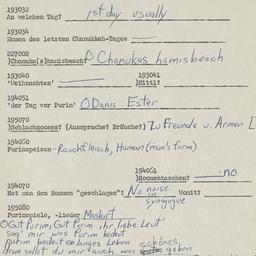 193032
An welchen Tag? 1st day usually
193034
Namen des letzten Chanukkah-Tages —
227002
)Chanuka(s)hamisbeach? O Chanukas hamisbeach
193040 193041
'Weihnachten' — )Nittl?
194051
'der Tag vor Purim' O Danis Ester
195070
)Schlachmoones? (Aussprache? Bräuche?) Zu Freunde u. Armen [
194060
Purimspeisen - Rauchfleisch, Homon (man's form)
194061
)Hoomentaschen? no
194070
Hat man den Hoomen "geschlagen"? No noise Womit?
synagogue
195080
Purimspiele, -lieder Maskirt
O Gut Purim, Gut Purim ihr liebe Leut'
Sag' mir was Purim bedeut
Purim bedeut en langes Leben schönes
drum sollst du mir auch was geben